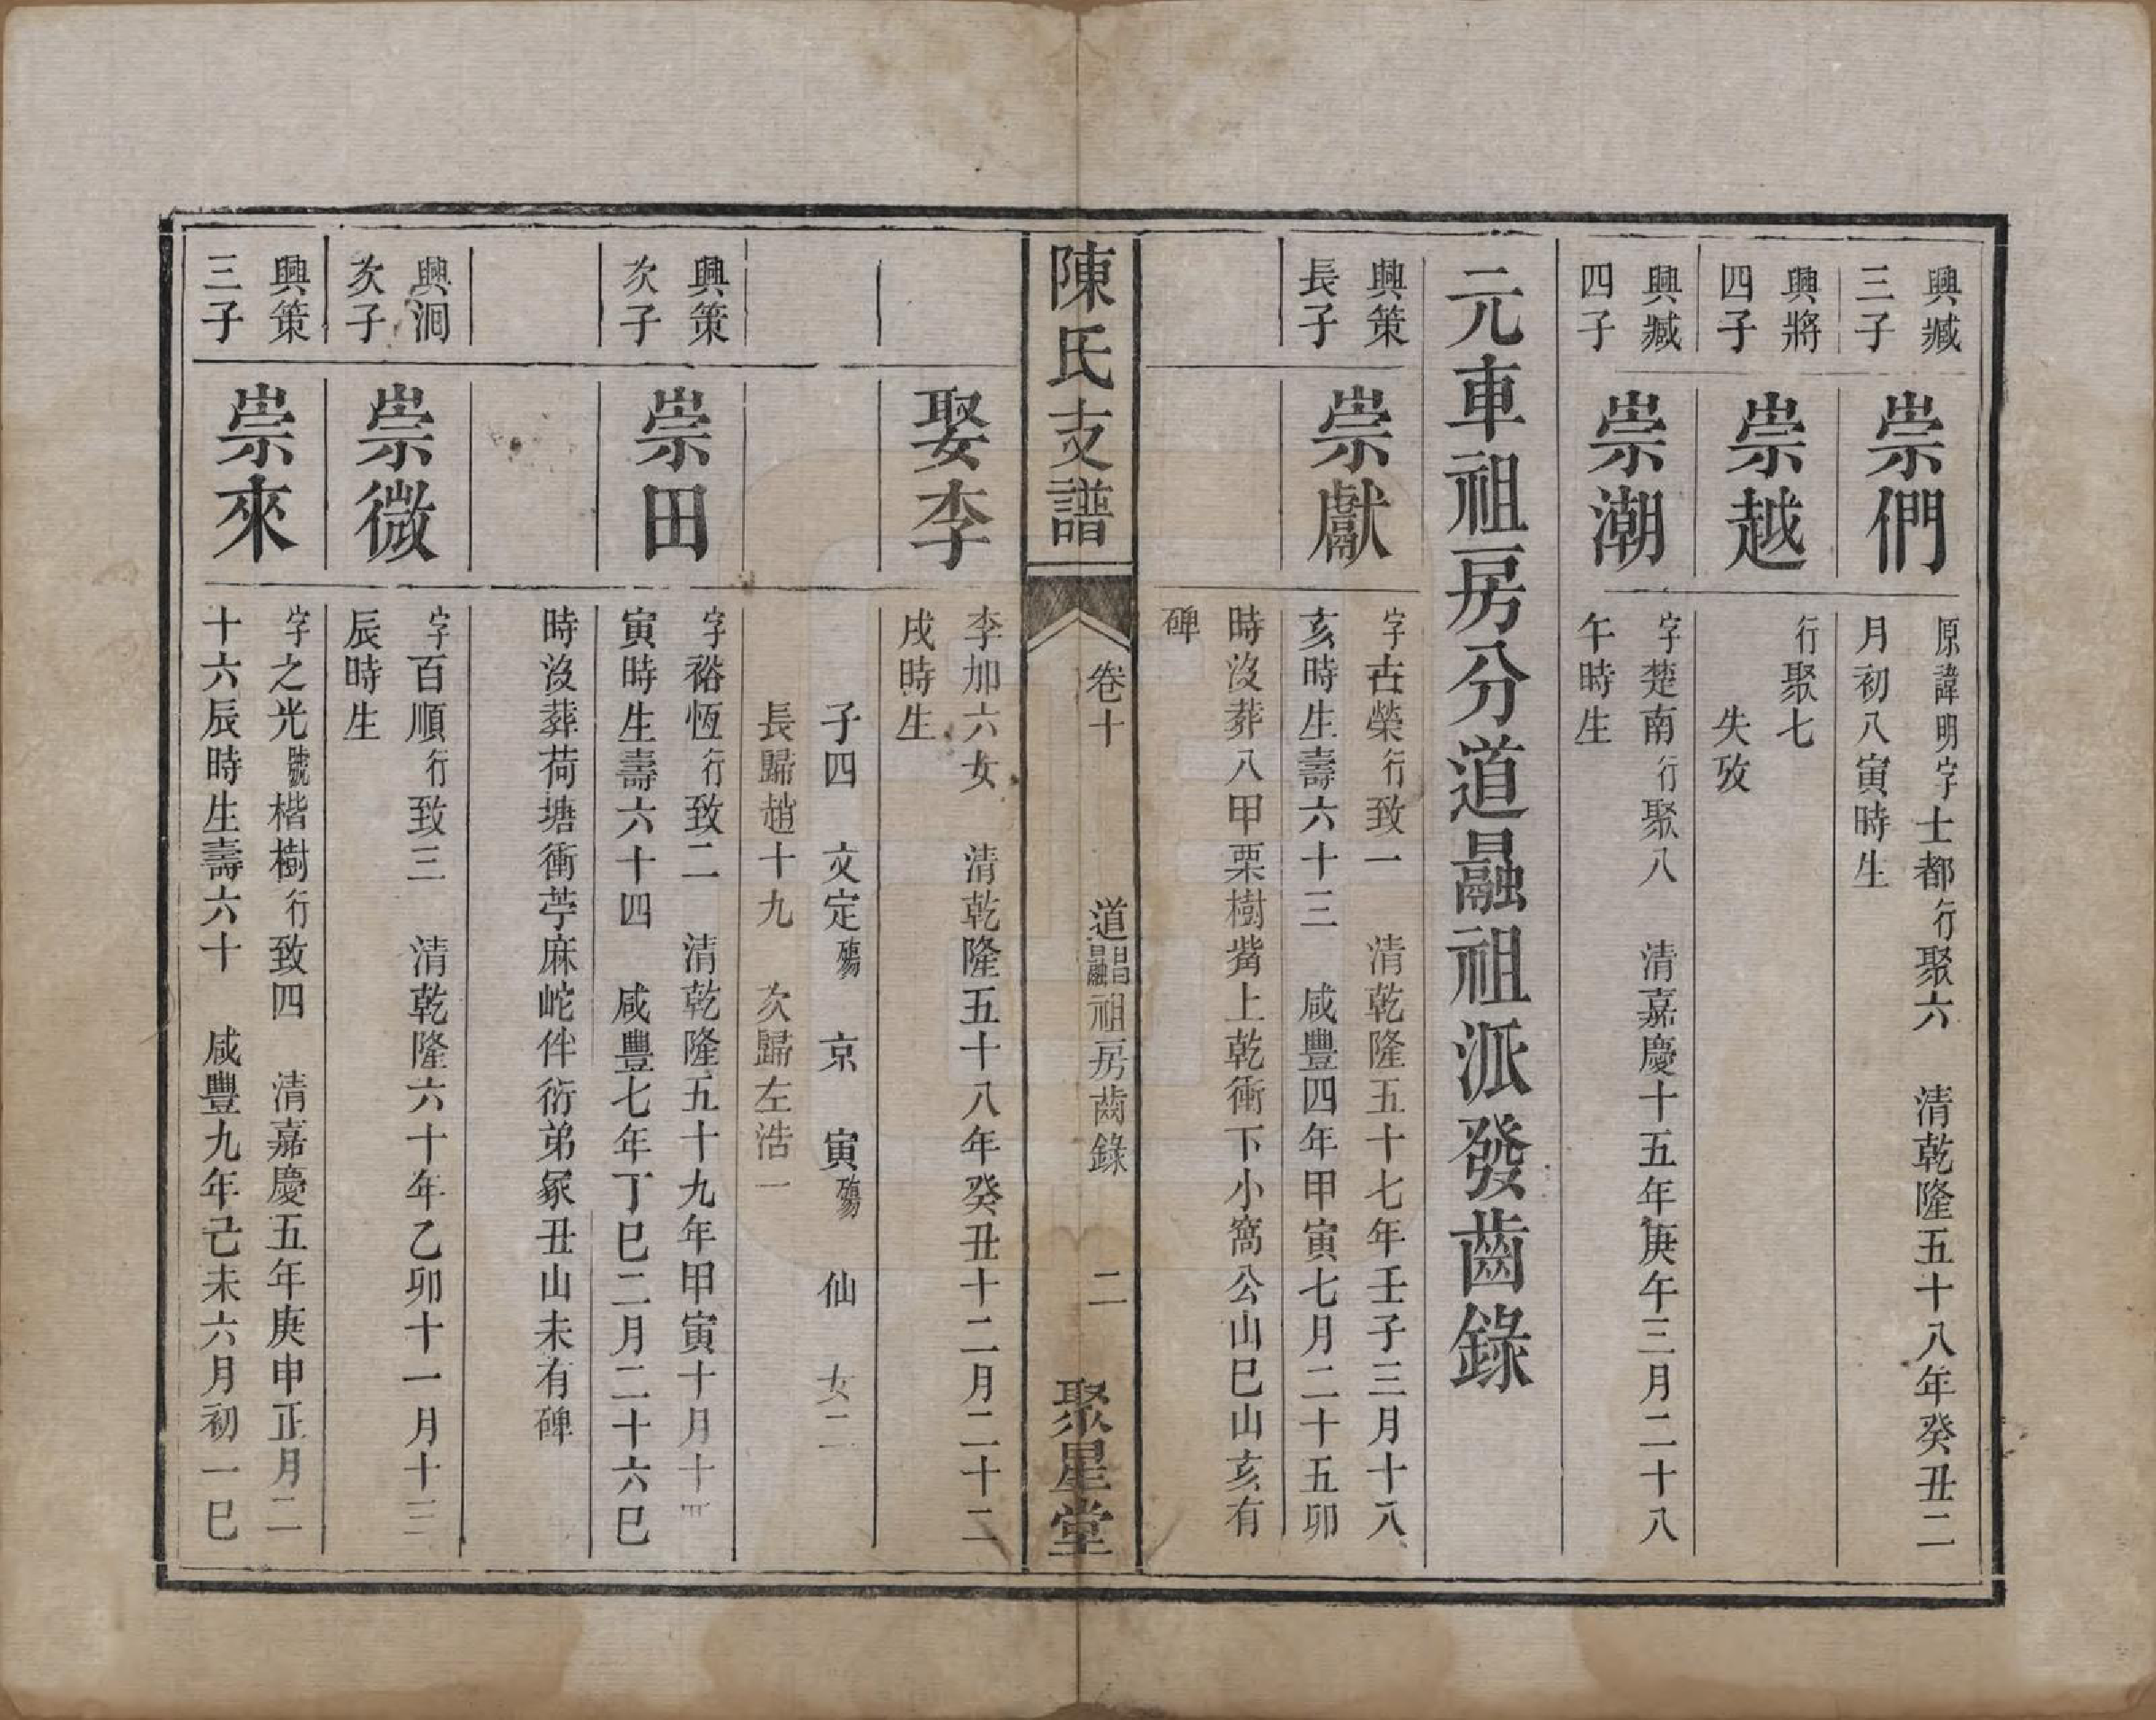 興臧
三子
崇們
原諱明字士都行聚六　清乾隆五十八年癸丑二
月初八寅時生
興將
四子
崇越
行聚七
失攷
興臧
四子
崇潮
字楚南行聚八　清嘉慶十五年庚午三月二十八
午時生
元車祖房分道融祖派發齒錄
興策
長子
崇獻
字古榮行致一　清乾隆五十七年壬子三月十八
亥時生壽六十三　咸豐四年甲寅七月二十五卯
時沒葬八甲栗樹嵴上乾衝下小窩公山巳山亥有
碑
陳氏支譜
卷十
道祖房齒錄
二
聚星堂
娶李
李加六女　清乾隆五十八年癸丑十二月二十二
戌時生
子四　文定殤　京　寅殤　仙　女二
長歸趙十九　次歸左浩一
興策
次子
崇田
字裕恆行致二　清乾隆五十九年甲寅十月十四
寅時生壽六十四　咸豐七年丁巳二月二十六巳
時沒葬荷塘衝苧麻岮伴衍弟冢丑山未有碑
興洄
次子
崇微
字百順行致三　清乾隆六十年乙卯十一月十三
辰時生
興策
三子
崇來
字之光號楷樹行致四　清嘉慶五年庚申正月二
十六辰時生壽六十　咸豐九年己未六月初一巳